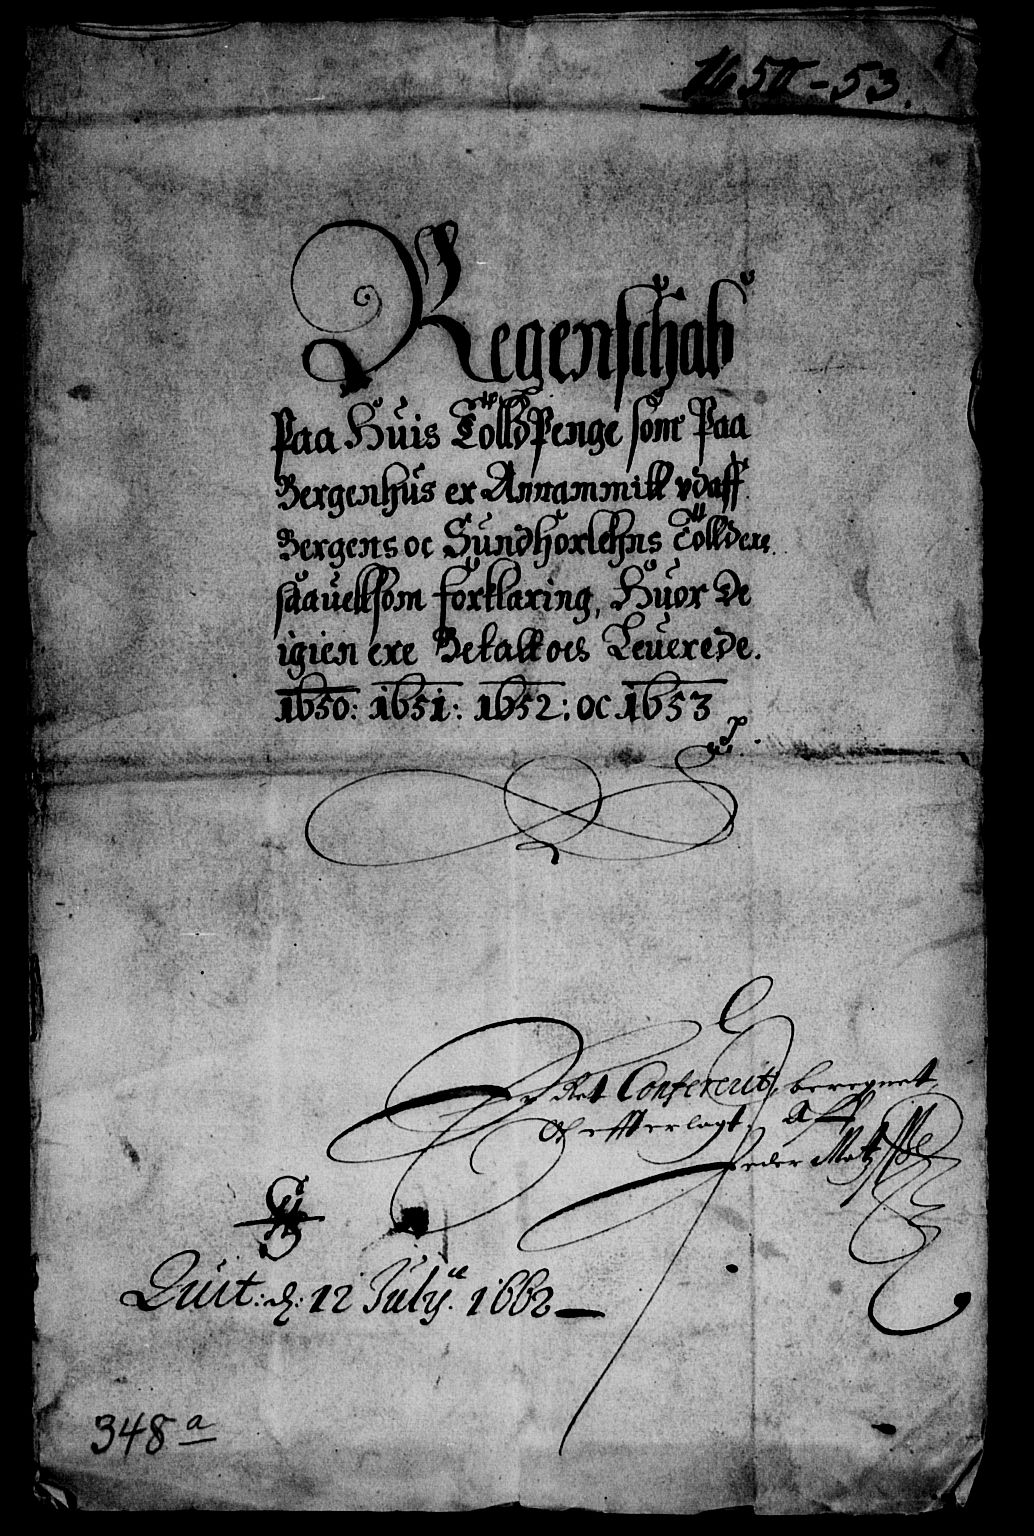 1650-53.
Regenschab
Paa Huis Tolld Penge som Paa
Bergenhus er Annammitt vdaff
Bergens oc Sundhorlehns Tolldere,
saauelsom forklaring, Huor De
igien ere Betalt oes Leuerede.
1650: 1651: 1652: oc 1653
Er Ret Confererit, beregnet,
Och effterlagt, Aff
Peder
Quit: d: 12 July: 1662
348 a